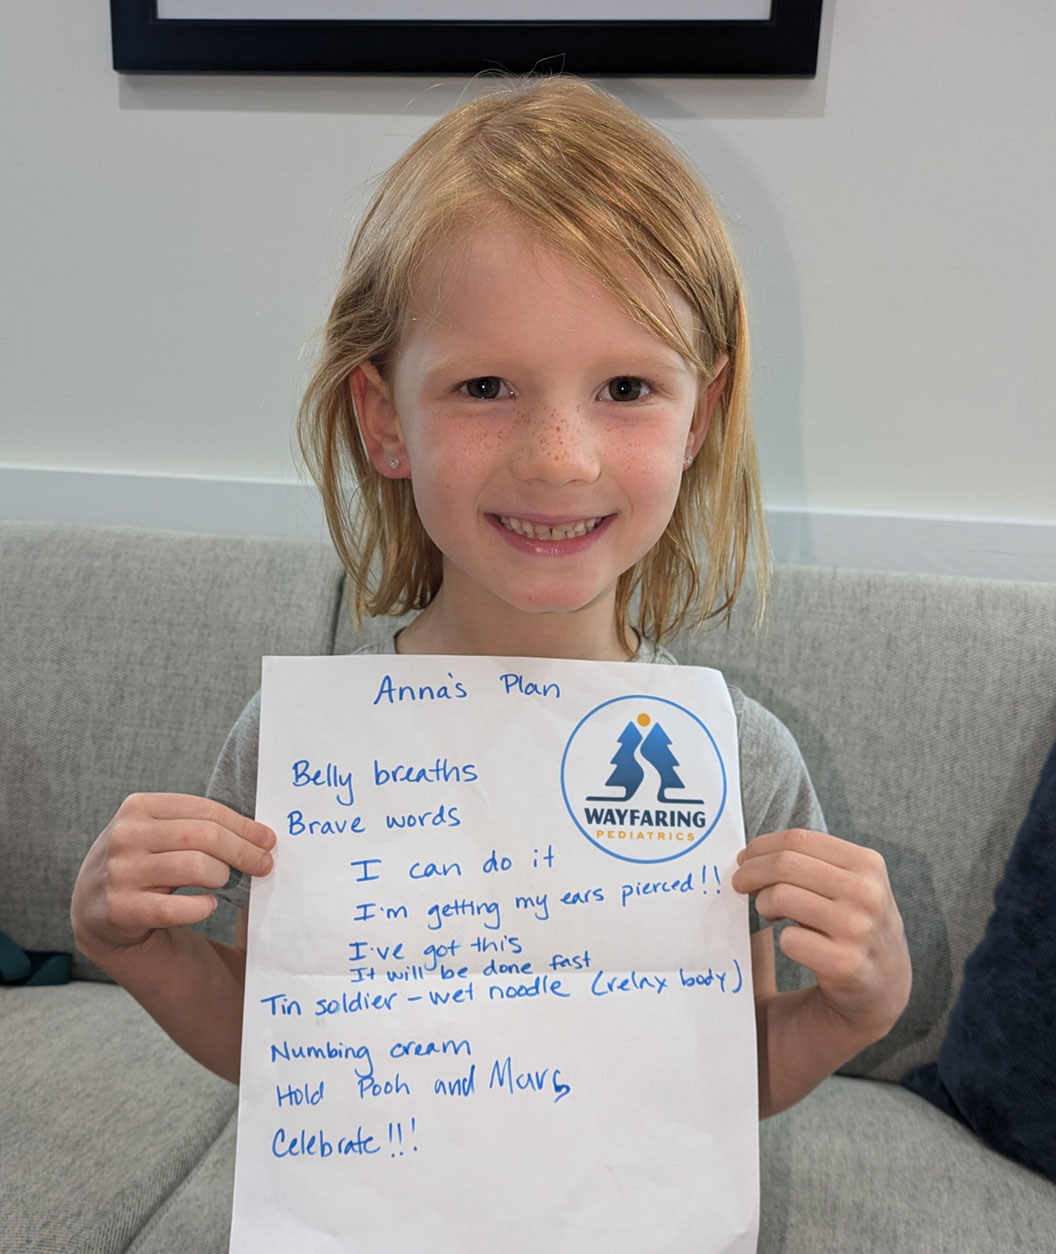 Anna's Plan
WAYFARING
PEDIATRICS
Belly breaths
Brave words
I can do it
I'm getting my ears pierced!!
I've got this
It will be done fast
Tin soldier - wet noodle (relax body)
Numbing cream
Hold Pooh and
Celebrate!!!